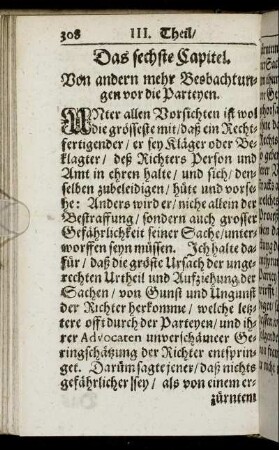 308 III. Theil/
Das sechste Capitel.
Von andern mehr Beobachtun-
gen vor die Parteyen.
UNter allen Vorsichten ist wol
die grösseste mit/ daß ein Recht-
fertigender/ er sey Kläger oder Be-
klagter/ deß Richters Person und
Amt in ehren halte/ und sich/ den-
selben zubeleidigen/ hüte und vorse-
he: Anders wird er/ nicht allein der
Bestraffung/ sondern auch grosser
Gefährlichkeit seiner Sache/ unter-
worffen seyn müssen. Ich halte da-
für/ daß die gröste Ursach der unge-
rechten Urtheil und Aufziehung der
Sachen/ von Gunst und Ungunst
der Richter herkomme/ welche letz-
tere offt durch der Parteyen/ und ih-
rer Advocaten unverschämter Ge-
ringschätzung der Richter entsprin-
get. Darüm sagte jener/ daß nichts
gefährlicher sey/ als von einem er-
zürntem